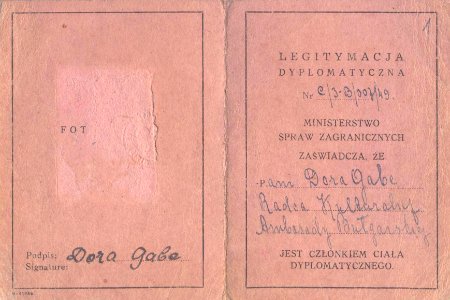 FOT
Podpis: Dora Gabe
Signature:
1
LEGITYMACJA
DYPLOMATYCZNA
Nr
MINISTERSTWO
SPRAW ZAGRANICZNYCH
ZAŚWIADCZA, ŻE
Pani Dora Gabe
Radca Kulturalny
Ambasady Bułgarskiej
JEST CZŁONKIEM CIAŁA
DYPLOMATYCZNEGO.